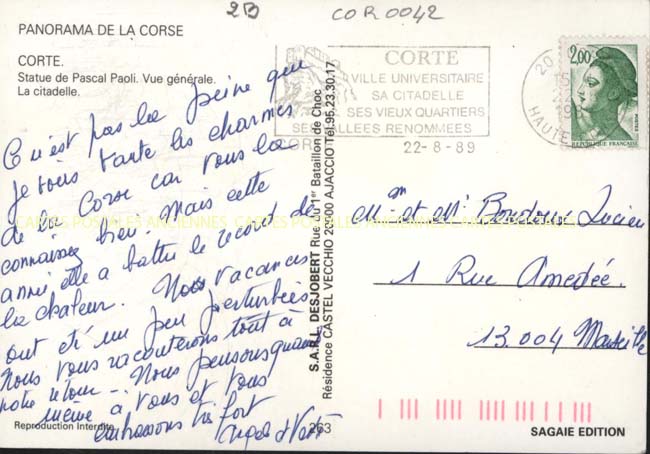 2B
COR0042
PANORAMA DE LA CORSE
CORTE.
Statue de Pascal Paoli. Vue générale.
La citadelle.
CORTE
VILLE UNIVERSITAIRE
SA CITADELLE
SES VIEUX QUARTIERS
SES VALLEES RENOMMEES
22-8-89
20
HAUTE
2,00
REPUBLIQUE FRANÇAISE
Ce n'est pas la peine que
je vous vante les charmes
de la Corse car vous la
connaissez bien. Mais cette
année elle a battu le record de
la chaleur. Nos vacances
ont été un peu perturbées
Nous vous raconterons tout à
notre retour - Nous pensons quand
même à vous et vous
embrassons très fort
CARTES POSTALES ANCIENNES
S.A.R.L. DESJOBERT Rue du 1er Bataillon de Choc
Résidence CASTEL VECCHIO 20000 AJACCIO Tél. 95.23.30.17
Mme et Mr Lucien
1 Rue Amedée.
13.004 Marseille
Reproduction Interdite
263
SAGAIE EDITION